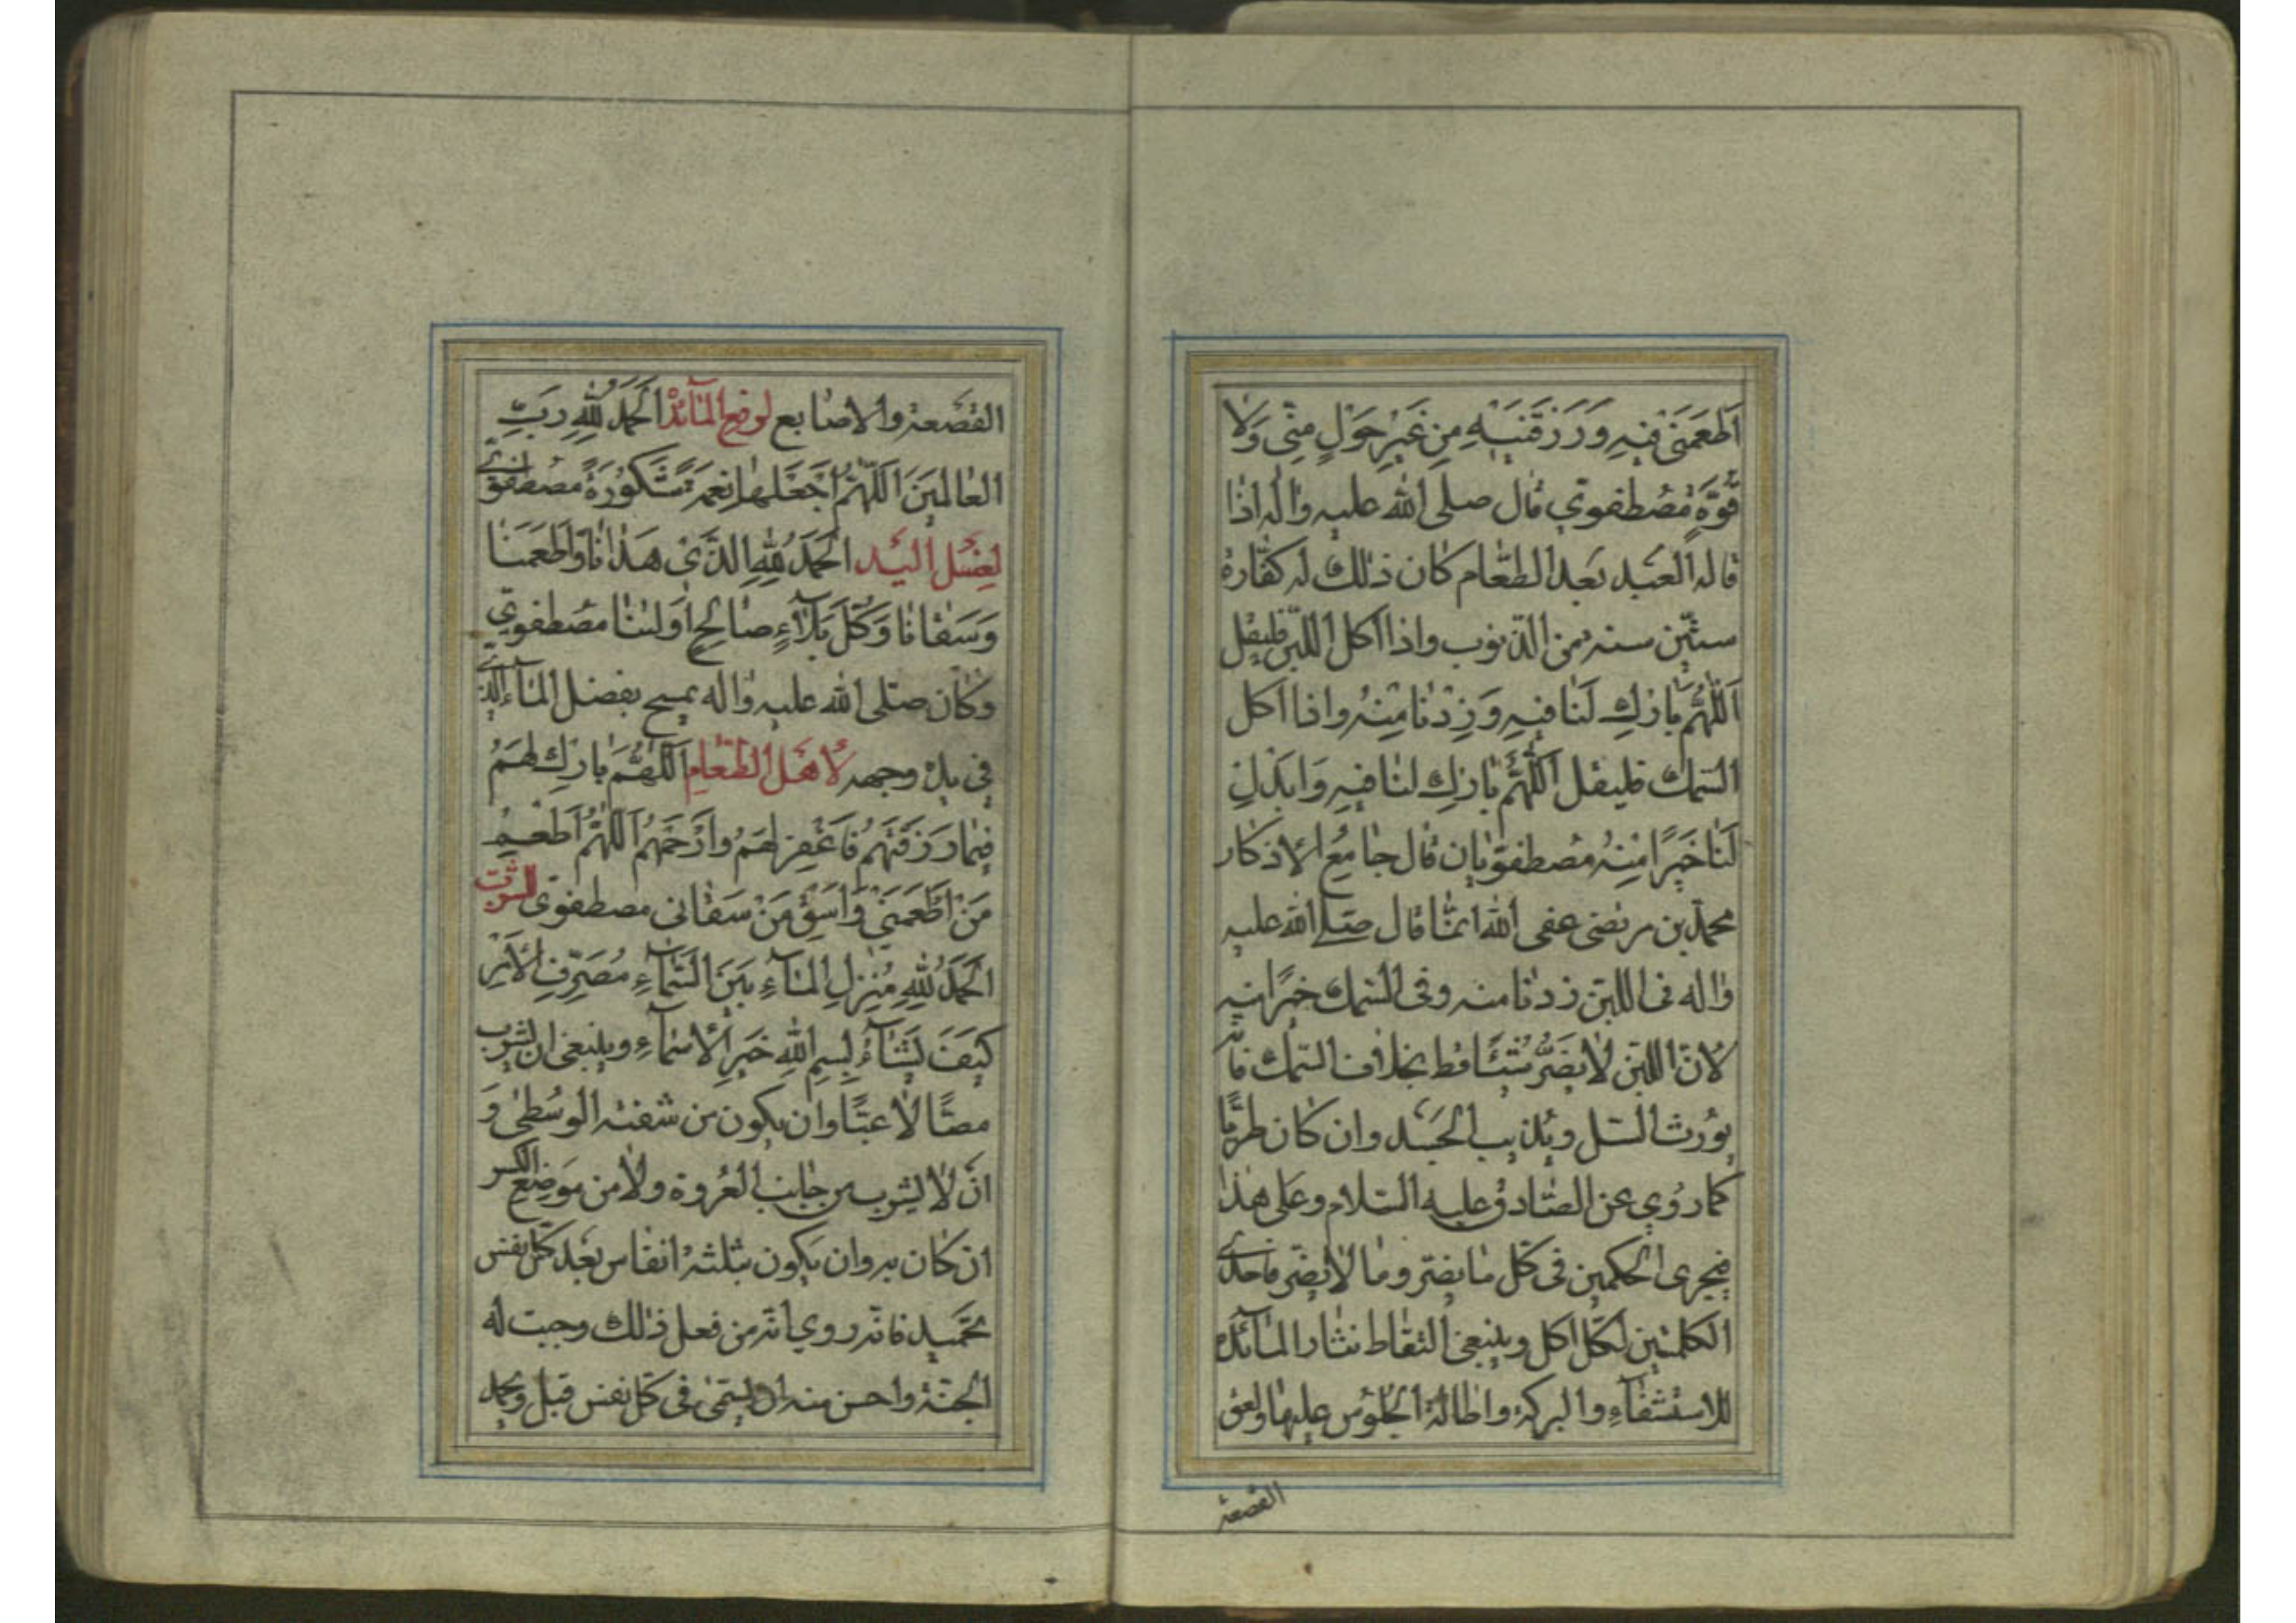 اَطْعَمَنى فيهِ وَرَزَقَنيهِ مِن غَيْرِ حَوْلٍ مِنّى وَلا
قُوَّةٍ مُصْطفوي قال صلى الله عليه واله اذا
قاله العبد بعد الطّعام كان ذلك له كفّارة
ستّين سنه من الذنوب واذا اكل اللّبن فليقل
اَللّهُمَّ بارِك لَنا فيهِ وَزِدْنا مِنْهُ واذا اكل
السّمك فليقل اَللّهُمَّ بارِك لنا فيهِ وَابدلنِ
لَنا خَيرًا مِنْهُ مصطفويان قال جامِعُ الاذكار
محمّد بن مرتضى عفى الله انّما قال صلى الله عليه
واله فى اللبن زدنا منه وفى السّمك خيرا منه
لانّ اللّبن لا يضرّ شيئًا قط بخلاف السّمك فانّه
يورث السّل ويذيب الجسد وان كان طريًّا
كما رُوي عن الصّادق عليه السّلام وعلى هذا
فيجرى الحكمين فى كل ما يضر وما لا يضر فاحدى
الكلمتين لكل اكل وينبغى التقاط نثار المائدة
للاستشفاء والبركة واطالة الجلوس عليها ولعق
القصعة
القصعة والاصابع لرفع المائدة اَلحَمدُ لِلّهِ رَبِّ
العالَمينَ اَللّهُمَّ اجْعَلها نِعمَةً مَشكُورَةً مصطفوى
لِغسل اليد اَلحَمدُ لِلّهِ الَّذى هَدانا وَاَطعَمَنا
وَسَقانا وَكُلَّ بَلاءٍ صالِحٍ اَولينا مصطفوي
وكان صلى الله عليه واله يمسح بفضل الماء الّذى
فى يده وجهه لاهل الطّعام اَللّهُمَّ بارِك لهُم
فيما رَزَقتَهُم فَاغْفِر لَهُم وَارْحَمهُم اَللّهُمَّ اَطعِم
مَنْ اَطْعَمَنى وَاسْقِ مَنْ سَقانى مصطفوى للشرب
اَلحَمدُ لِلّهِ مُنزِلِ الماءِ مِنَ السَّماءِ مُصَرِّفِ الاَمرِ
كَيفَ يَشاءُ بِسمِ اللهِ خَيرِ الاَسماءِ وينبغى ان يشرب
مصّا لا عبّا وان يكون من شفته الوسطى و
ان لا يشرب من جانب العروة ولا من موضع الكسر
ان كان به وان يكون بثلثة انفاس بعد كل نفس
تحميد فانّه روي انّه من فعل ذلك وجبت له
الجنّة واحسن منه ان يسمّى فى كل نفس قبل ويحمد